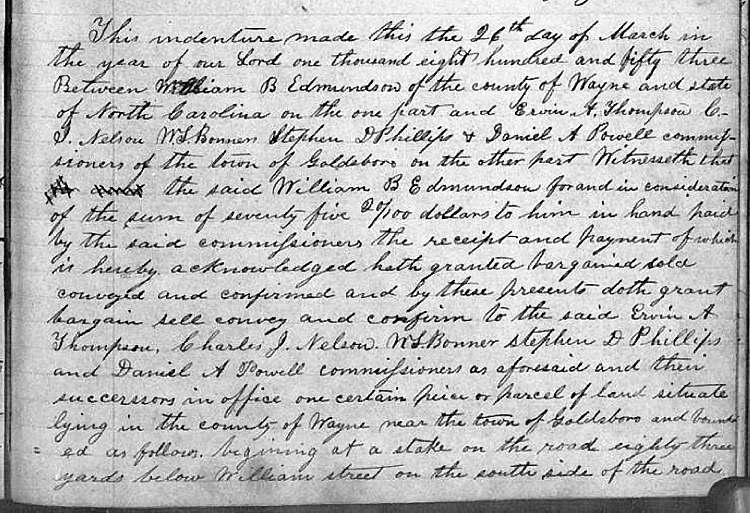 This indenture made this the 26th day of March in
the year of our Lord one thousand eight hundred and fifty three
Between William B Edmundson of the county of Wayne and state
of North Carolina on the one part and Ervin A. Thompson C-
J. Nelson W S Bonner Stephen D Phillips & Daniel A Powell commis-
sioners of the town of Goldsboro on the other part Witnesseth that
the said William B Edmundson for and in consideration
of the sum of seventy five 20/100 dollars to him in hand paid
by the said commissioners the receipt and payment of which
is hereby acknowledged hath granted bargained sold
conveyed and confirmed and by these presents doth grant
bargain sell convey and confirm to the said Ervin A
Thompson, Charles J. Nelson W S Bonner stephen D Phillips
and Daniel A Powell commissioners as aforesaid and their
successsors in office one certain peice or parcel of land situate
lying in the county of Wayne near the town of Goldsboro and bound
= ed as follows. begining at a stake on the road eighty three
yards below William street on the south side of the road